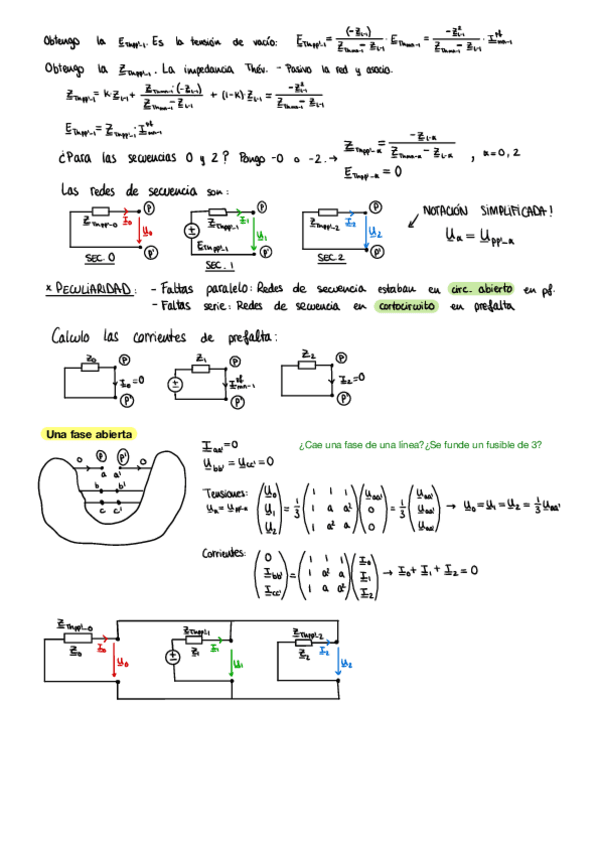 Obtengo la E_Thpp'_1. Es la tensión de vacío: E_Thpp'_1 = (-Z_L-1) / (Z_Thmn-1 - Z_L-1) · E_Thmn-1 = -Z²_L-1 / (Z_Thmn-1 - Z_L-1) · I^pf_mn-1
Obtengo la Z_Thpp'_1. La impedancia Thév. - Pasivo la red y asocio.
Z_Thpp'_1 = K·Z_L-1 + Z_Thmn-1·(-Z_L-1) / (Z_Thmn-1 - Z_L-1) + (1-K)·Z_L-1 = -Z²_L-1 / (Z_Thmn-1 - Z_L-1)
E_Thpp'_1 = Z_Thpp'_1 · I^pf_mn-1
¿Para las secuencias 0 y 2? Pongo -0 o -2. → Z_Thpp'_α = -Z²_L-α / (Z_Thmn-α - Z_L-α), α=0, 2
E_Thpp'_α = 0
Las redes de secuencia son:
Z_Thpp'_0 I_0 P U_0 P' SEC. 0
Z_Thpp'_1 I_1 P E_Thpp'_1 U_1 P' SEC. 1
Z_Thpp'_2 I_2 P U_2 P' SEC. 2
NOTACIÓN SIMPLIFICADA!
U_α = U_pp'_α
* PECULIARIDAD: - Faltas paralelo: Redes de secuencia estaban en circ. abierto en pf.
- Faltas serie: Redes de secuencia en cortocircuito en prefalta
Calculo las corrientes de prefalta:
Z_0 P I_0=0 P'
Z_1 P I^pf_mn-1 P'
Z_2 P I_2=0 P'
Una fase abierta
¿Cae una fase de una línea?¿Se funde un fusible de 3?
I_aa' = 0
U_bb' = U_cc' = 0
P P'
a a'
b b'
c c'
Tensiones: (U_0 U_1 U_2) = 1/3 (1 1 1; 1 a a²; 1 a² a) (U_aa' 0 0) = 1/3 (U_aa' U_aa' U_aa') → U_0 = U_1 = U_2 = 1/3 U_aa'
U_α = U_pp'-α
Corrientes: (0 I_bb' I_cc') = (1 1 1; 1 a² a; 1 a a²) (I_0 I_1 I_2) → I_0 + I_1 + I_2 = 0
Z_Thpp'_0 Z_0 I_0 U_0
Z_Thpp'_1 Z_1 I_1 U_1
Z_Thpp'_2 Z_2 I_2 U_2